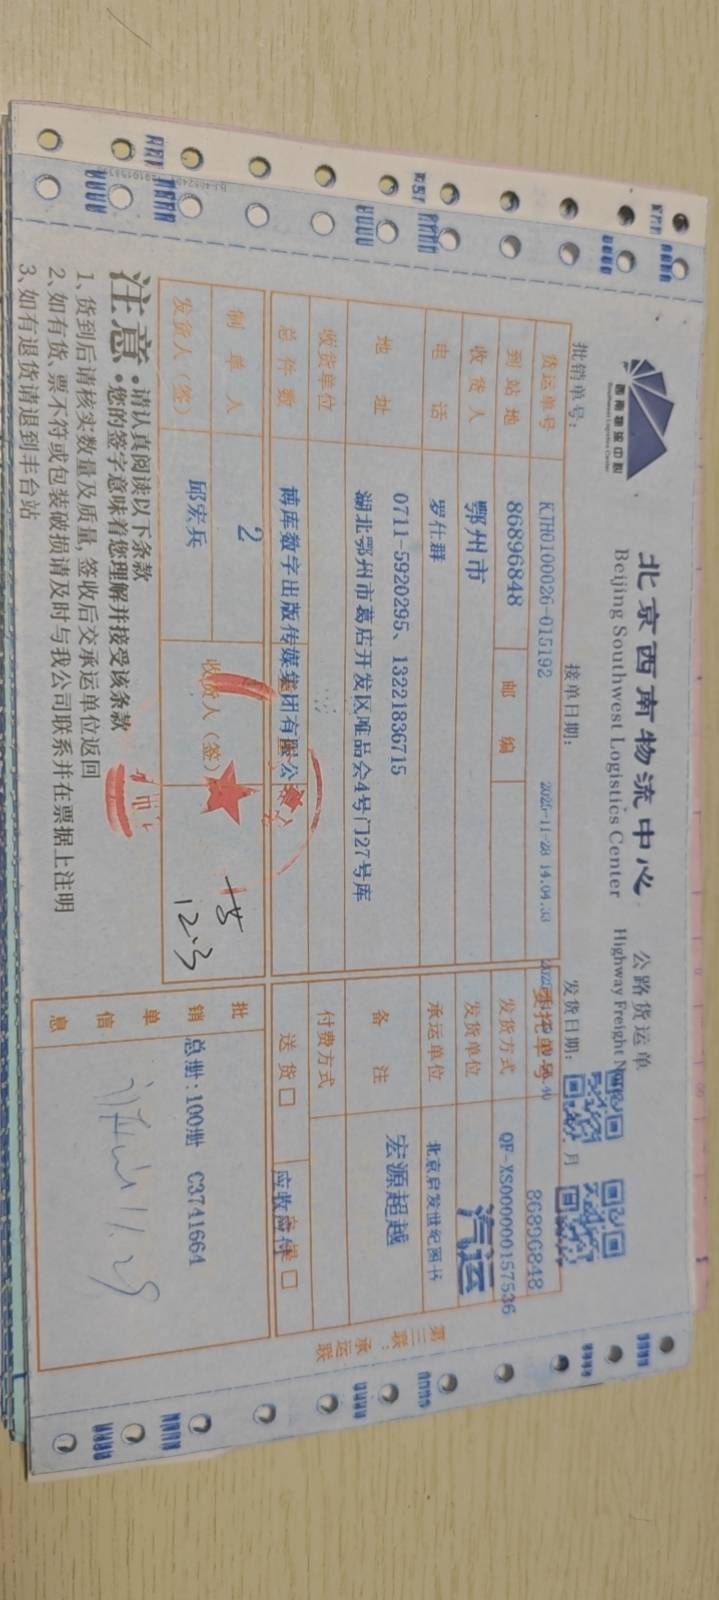 西南物流中心
Southwest Logistics Center
北京西南物流中心
公路货运单
Beijing Southwest Logistics Center
Highway Freight
批销单号:
接单日期:
2025-11-28 14.04.33
发货日期:
月
货运单号
KTH0100026-015192
委托单号
86896848
到站地
86896848
邮编
发货方式
QF-XS00000015753​6
收货人
鄂州市
发货单位
汽运
电话
罗仕群
承运单位
北京启发世纪图书
0711-5920295、13221836715
地址
湖北鄂州市葛店开发区唯品会4号门27号库
备注
宏源超越
收货单位
付费方式
总件数
博库数字出版传媒集团有限公
送货□
应收
制单人
2
收货人(签)
发货人(签)
邱宏兵
12.3
批销单信息
总册:100册 C3741664
11.29
注意:
请认真阅读以下条款
您的签字意味着您理解并接受该条款
1、货到后请核实数量及质量,签收后交承运单位返回
2、如有货、票不符或包装破损请及时与我公司联系并在票据上注明
3、如有退货请退到丰台站
第三联:承运联